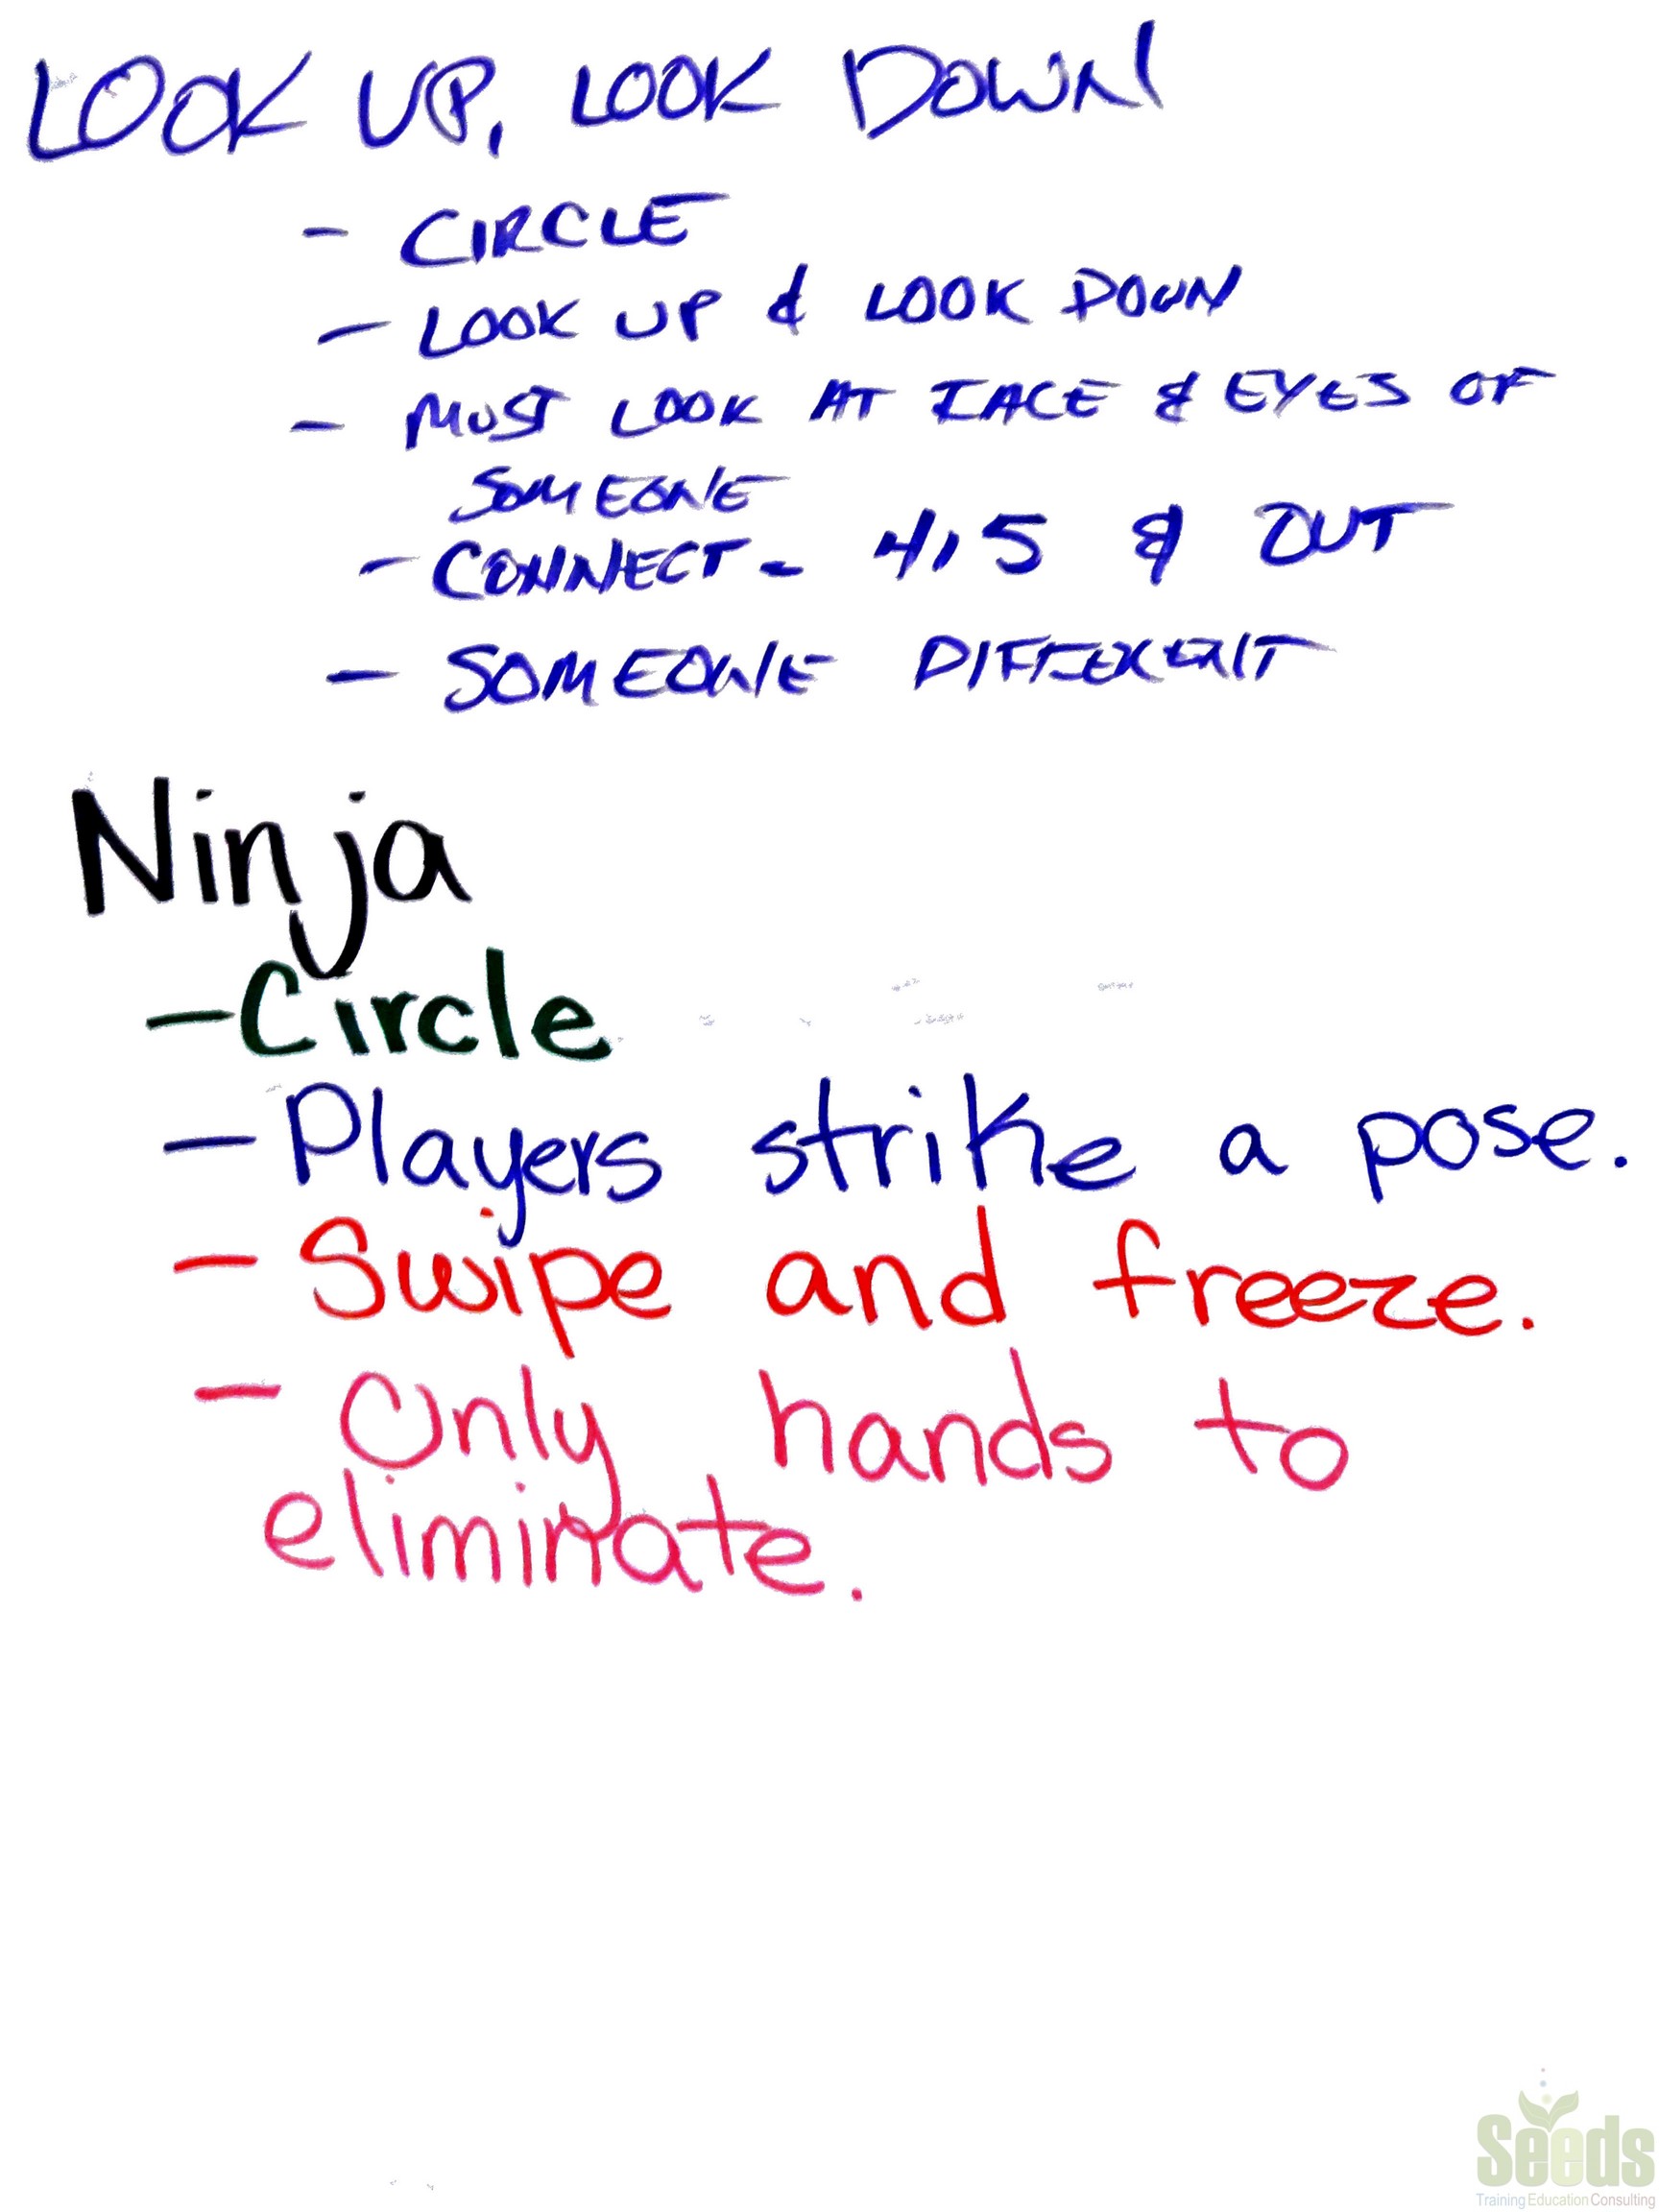 LOOK UP, LOOK DOWN
- CIRCLE
- LOOK UP & LOOK DOWN
- MUST LOOK AT FACE & EYES OF
SOMEONE
- CONNECT - HIS & OUT
- SOMEONE DIFFERENT
Ninja
- Circle
- Players strike a pose.
- Swipe and freeze.
- Only hands to
eliminate.
Seeds
Training Education Consulting